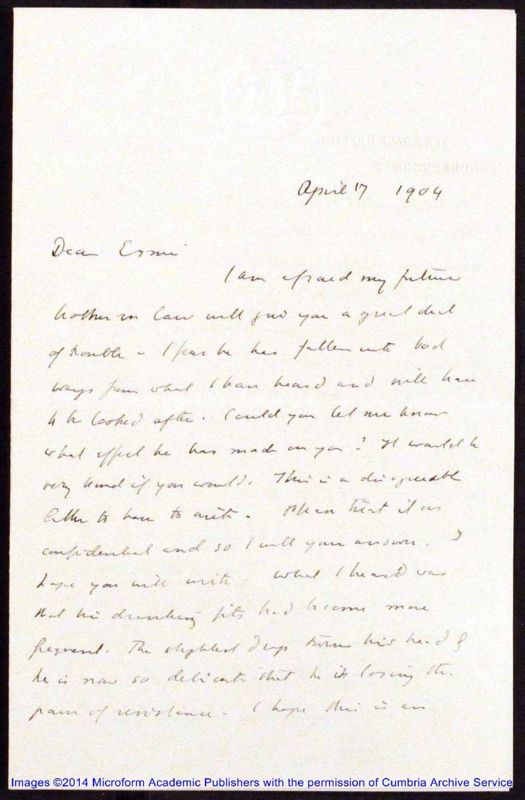 April 17 1904
Dear Esmé
I am afraid my future
brother in law will give you a great deal
of trouble - I fear he has fallen into bad
ways from what I have heard and will have
to be looked after. Could you let me know
what effect he has made on you? It would be
very kind if you would. This is a disagreeable
letter to have to write. Please treat it as
confidential and so I will your answer. I
hope you will write. What I heard was
that his drinking fits had become more
frequent. The slightest drop turns his head &
he is now so delicate that he is losing the
power of resistance - I hope this is an
Images ©2014 Microform Academic Publishers with the permission of Cumbria Archive Service